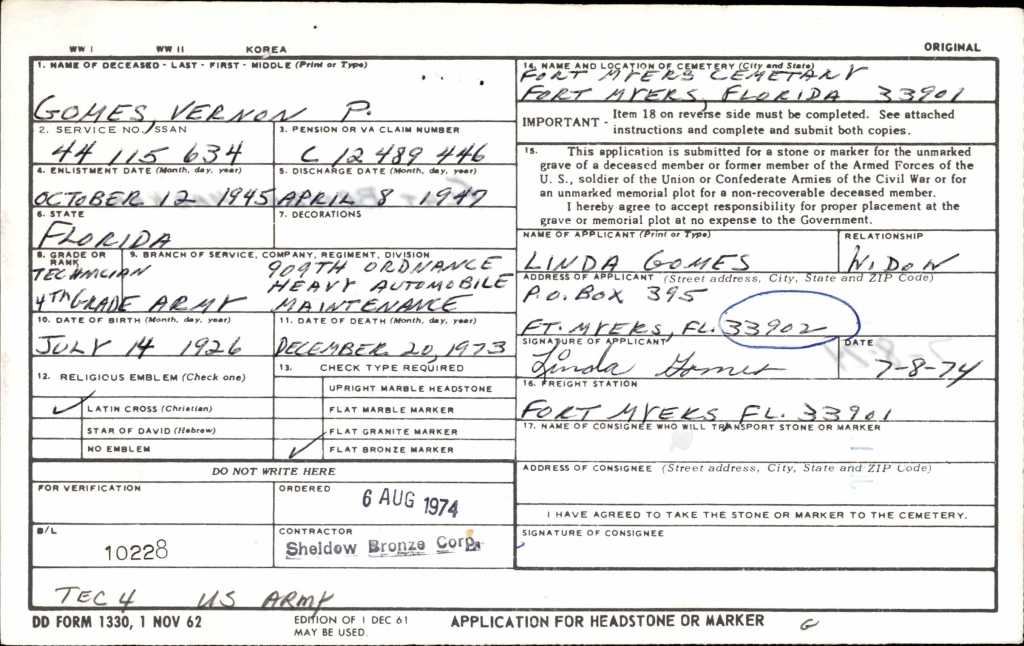 WW I WW II KOREA ORIGINAL
1. NAME OF DECEASED - LAST - FIRST - MIDDLE (Print or Type)
GOMES, VERNON P.
2. SERVICE NO./SSAN
44 115 634
3. PENSION OR VA CLAIM NUMBER
C 12 489 446
4. ENLISTMENT DATE (Month, day, year)
OCTOBER 12 1945
5. DISCHARGE DATE (Month, day, year)
APRIL 8 1947
6. STATE
FLORIDA
7. DECORATIONS
8. GRADE OR
RANK
TECHNICIAN
4TH GRADE
9. BRANCH OF SERVICE, COMPANY, REGIMENT, DIVISION
909TH ORDNANCE
HEAVY AUTOMOBILE
ARMY MAINTENANCE
10. DATE OF BIRTH (Month, day, year)
JULY 14 1926
11. DATE OF DEATH (Month, day, year)
DECEMBER 20, 1973
12. RELIGIOUS EMBLEM (Check one)
LATIN CROSS (Christian)
STAR OF DAVID (Hebrew)
NO EMBLEM
13. CHECK TYPE REQUIRED
UPRIGHT MARBLE HEADSTONE
FLAT MARBLE MARKER
FLAT GRANITE MARKER
FLAT BRONZE MARKER
DO NOT WRITE HERE
FOR VERIFICATION
ORDERED
6 AUG 1974
B/L
10228
CONTRACTOR
Sheldow Bronze Corp.
14. NAME AND LOCATION OF CEMETERY (City and State)
FORT MYERS CEMETARY
FORT MYERS, FLORIDA 33901
IMPORTANT - Item 18 on reverse side must be completed. See attached
instructions and complete and submit both copies.
15. This application is submitted for a stone or marker for the unmarked
grave of a deceased member or former member of the Armed Forces of the
U. S., soldier of the Union or Confederate Armies of the Civil War or for
an unmarked memorial plot for a non-recoverable deceased member.
I hereby agree to accept responsibility for proper placement at the
grave or memorial plot at no expense to the Government.
NAME OF APPLICANT (Print or Type)
LINDA GOMES
RELATIONSHIP
WIDOW
ADDRESS OF APPLICANT (Street address, City, State and ZIP Code)
P.O. BOX 395
FT. MYERS, FL. 33902
SIGNATURE OF APPLICANT
Linda Gomes
DATE
7-8-74
16. FREIGHT STATION
FORT MYERS FL. 33901
17. NAME OF CONSIGNEE WHO WILL TRANSPORT STONE OR MARKER
ADDRESS OF CONSIGNEE (Street address, City, State and ZIP Code)
I HAVE AGREED TO TAKE THE STONE OR MARKER TO THE CEMETERY.
SIGNATURE OF CONSIGNEE
TEC 4 US ARMY
DD FORM 1330, 1 NOV 62
EDITION OF 1 DEC 61
MAY BE USED.
APPLICATION FOR HEADSTONE OR MARKER